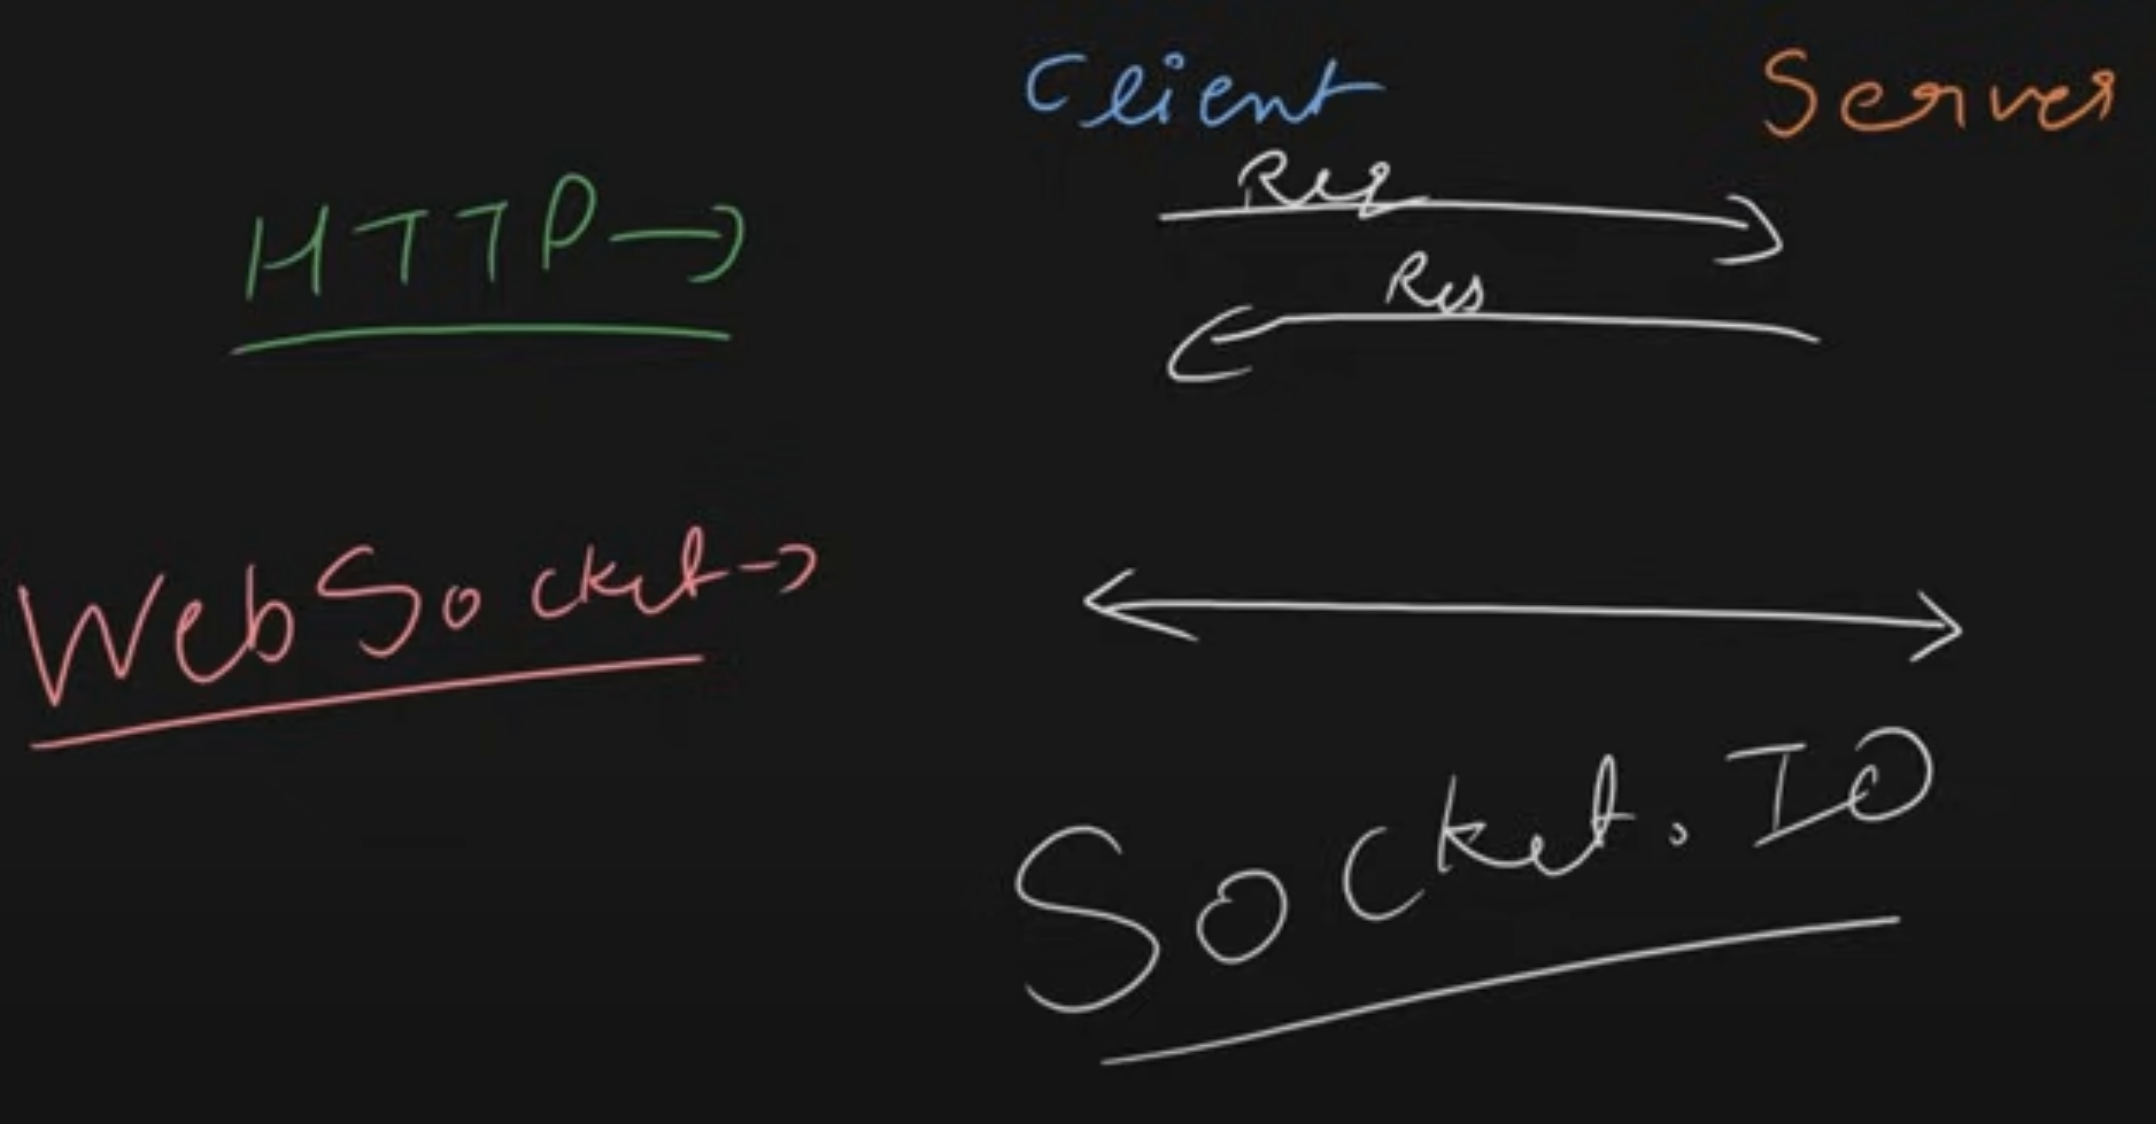 Client Server
Req
HTTP→
Res
WebSocket→
Socket.IO